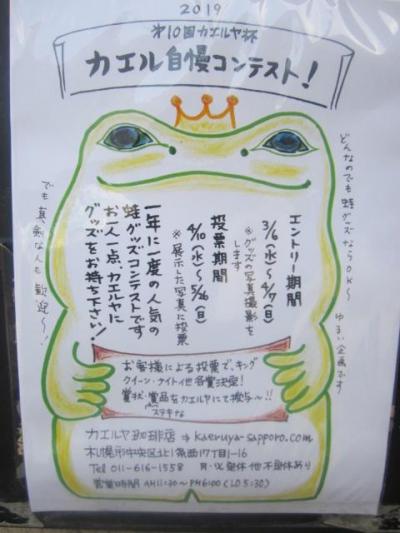 2019
第10回カエルヤ杯
カエル自慢コンテスト!
どんなのでも蛙グッズならOK〜
ゆるい企画です
エントリー期間
3/6(水)〜4/7(日)
※グッズの写真撮影を
します
投票期間
4/10(水)〜5/26(日)
※展示した写真に投票
一年に一度の人気の
蛙グッズコンテストです
お一人一点、カエルヤに
グッズをお持ち下さい!
でも真剣な人も歓迎〜!
お客様による投票で、キング
クイーン・ナイト他各賞決定!
賞状・賞品をカエルヤにて授与〜!!
ステキな
カエルヤ珈琲店⇒kaeruya-sapporo.com
札幌市中央区北1条西17丁目1-16
Tel 011-616-1558 月・火定休他不定休あり
営業時間 AM11:30〜PM6:00(LO5:30)